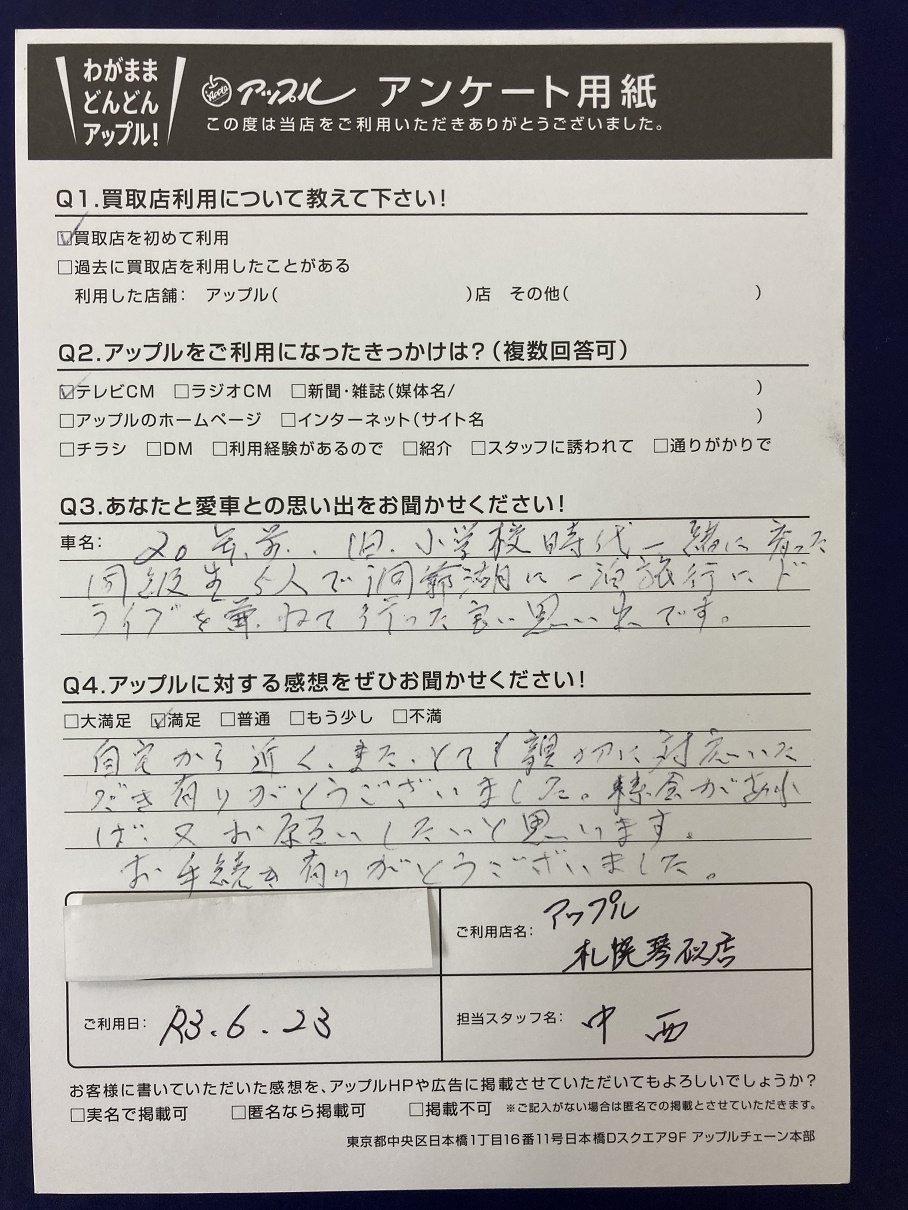 わがまま
どんどん
アップル!
Apple アップル アンケート用紙
この度は当店をご利用いただきありがとうございました。
Q1.買取店利用について教えて下さい!
☑買取店を初めて利用
□過去に買取店を利用したことがある
利用した店舗: アップル( )店 その他( )
Q2.アップルをご利用になったきっかけは?(複数回答可)
☑テレビCM □ラジオCM □新聞・雑誌(媒体名/ )
□アップルのホームページ □インターネット(サイト名 )
□チラシ □DM □利用経験があるので □紹介 □スタッフに誘われて □通りがかりで
Q3.あなたと愛車との思い出をお聞かせください!
車名: 20年前、旧、小学校時代一緒に育った
同級生5人で洞爺湖に一泊旅行にド
ライブを兼ねて行った良い思い出です。
Q4.アップルに対する感想をぜひお聞かせください!
□大満足 ☑満足 □普通 □もう少し □不満
自宅から近く、また、とても親切に対応いた
だき有りがとうございました。機会があれ
ば、又お願いしたいと思います。
お手続き有りがとうございました。
ご利用店名: アップル
札幌琴似店
ご利用日: R3.6.23
担当スタッフ名: 中西
お客様に書いていただいた感想を、アップルHPや広告に掲載させていただいてもよろしいでしょうか?
□実名で掲載可 □匿名なら掲載可 □掲載不可 ※ご記入がない場合は匿名での掲載とさせていただきます。
東京都中央区日本橋1丁目16番11号日本橋Dスクエア9F アップルチェーン本部